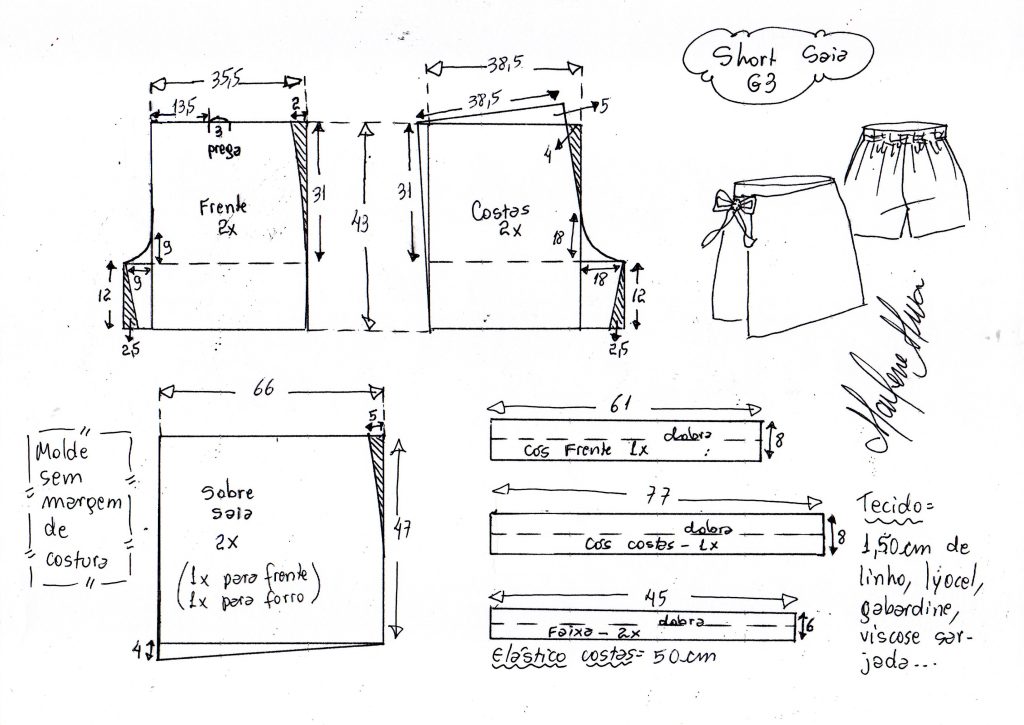 Short Saia
G3
35,5
13,5
2
3
prega
Frente
2x
31
9
9
12
2,5
43
38,5
38,5
5
4
31
Costas
2x
18
18
12
2,5
Marlene Mukai
66
5
Sobre
saia
2x
(1x para frente
1x para forro)
47
4
Molde
sem
margem
de
costura
61
dobra
Cos Frente 1x
8
77
dobra
Cos costas - 1x
8
45
dobra
Faixa - 2x
6
Elástico costas= 50cm
Tecido=
1,50cm de
linho, lyocel,
gabardine,
viscose sar-
jada...